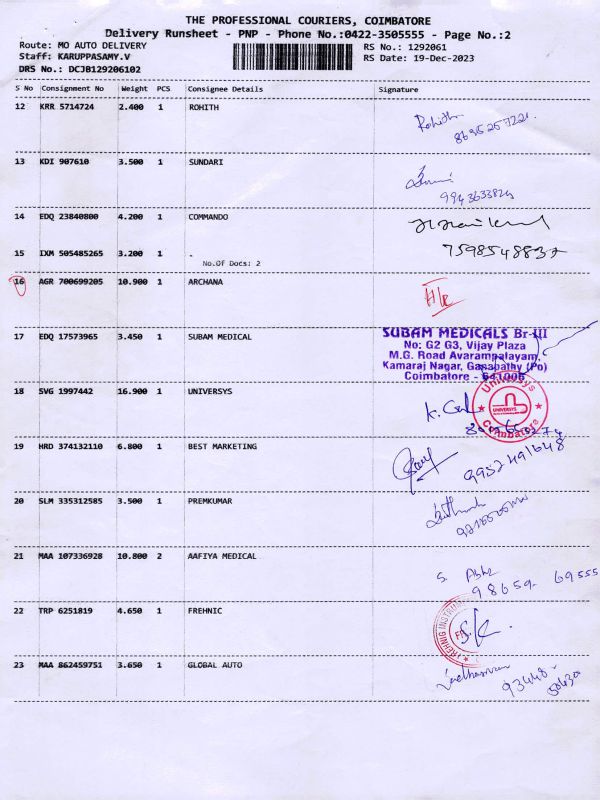 THE PROFESSIONAL COURIERS, COIMBATORE
Delivery Runsheet - PNP - Phone No.:0422-3505555 - Page No.:2
Route: MO AUTO DELIVERY
Staff: KARUPPASAMY.V
DRS No.: DCJB129206102
RS No.: 1292061
RS Date: 19-Dec-2023
S No Consignment No Weight PCS Consignee Details Signature
12 KRR 5714724 2.400 1 ROHITH
Rohith
13 KDI 907610 3.500 1 SUNDARI
9943633824
14 EDQ 23840800 4.200 1 COMMANDO
15 IXM 505485265 3.200 1 .
No.Of Docs: 2
7598548837
16 AGR 700699205 10.900 1 ARCHANA
17 EDQ 17573965 3.450 1 SUBAM MEDICAL
SUBAM MEDICALS Br-III
No: G2 G3, Vijay Plaza
M.G. Road Avarampalayam,
Kamaraj Nagar, Ganapathy (Po)
Coimbatore - 641006
18 SVG 1997442 16.900 1 UNIVERSYS
Universys
UNIVERSYS
Coimbatore
19 HRD 374132110 6.800 1 BEST MARKETING
9952491648
20 SLM 335312585 3.500 1 PREMKUMAR
21 MAA 107336928 10.800 2 AAFIYA MEDICAL
98659-69555
22 TRP 6251819 4.650 1 FREHNIC
23 MAA 862459751 3.650 1 GLOBAL AUTO
93448-